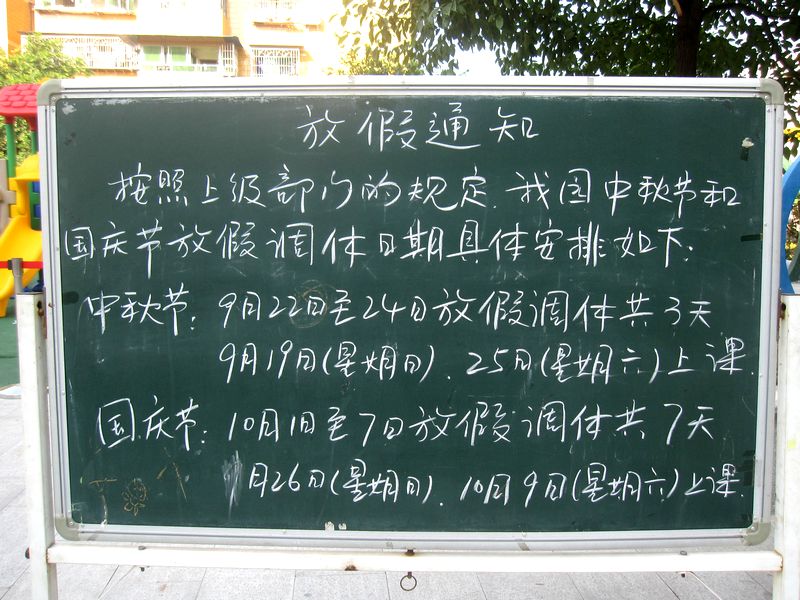 放假通知
按照上级部门的规定.我国中秋节和
国庆节放假调休日期具体安排如下:
中秋节:9月22日至24日放假调休共3天
9月19日(星期日).25日(星期六)上课.
国庆节:10月1日至7日放假调休共7天
月26日(星期日).10月9日(星期六)上课.